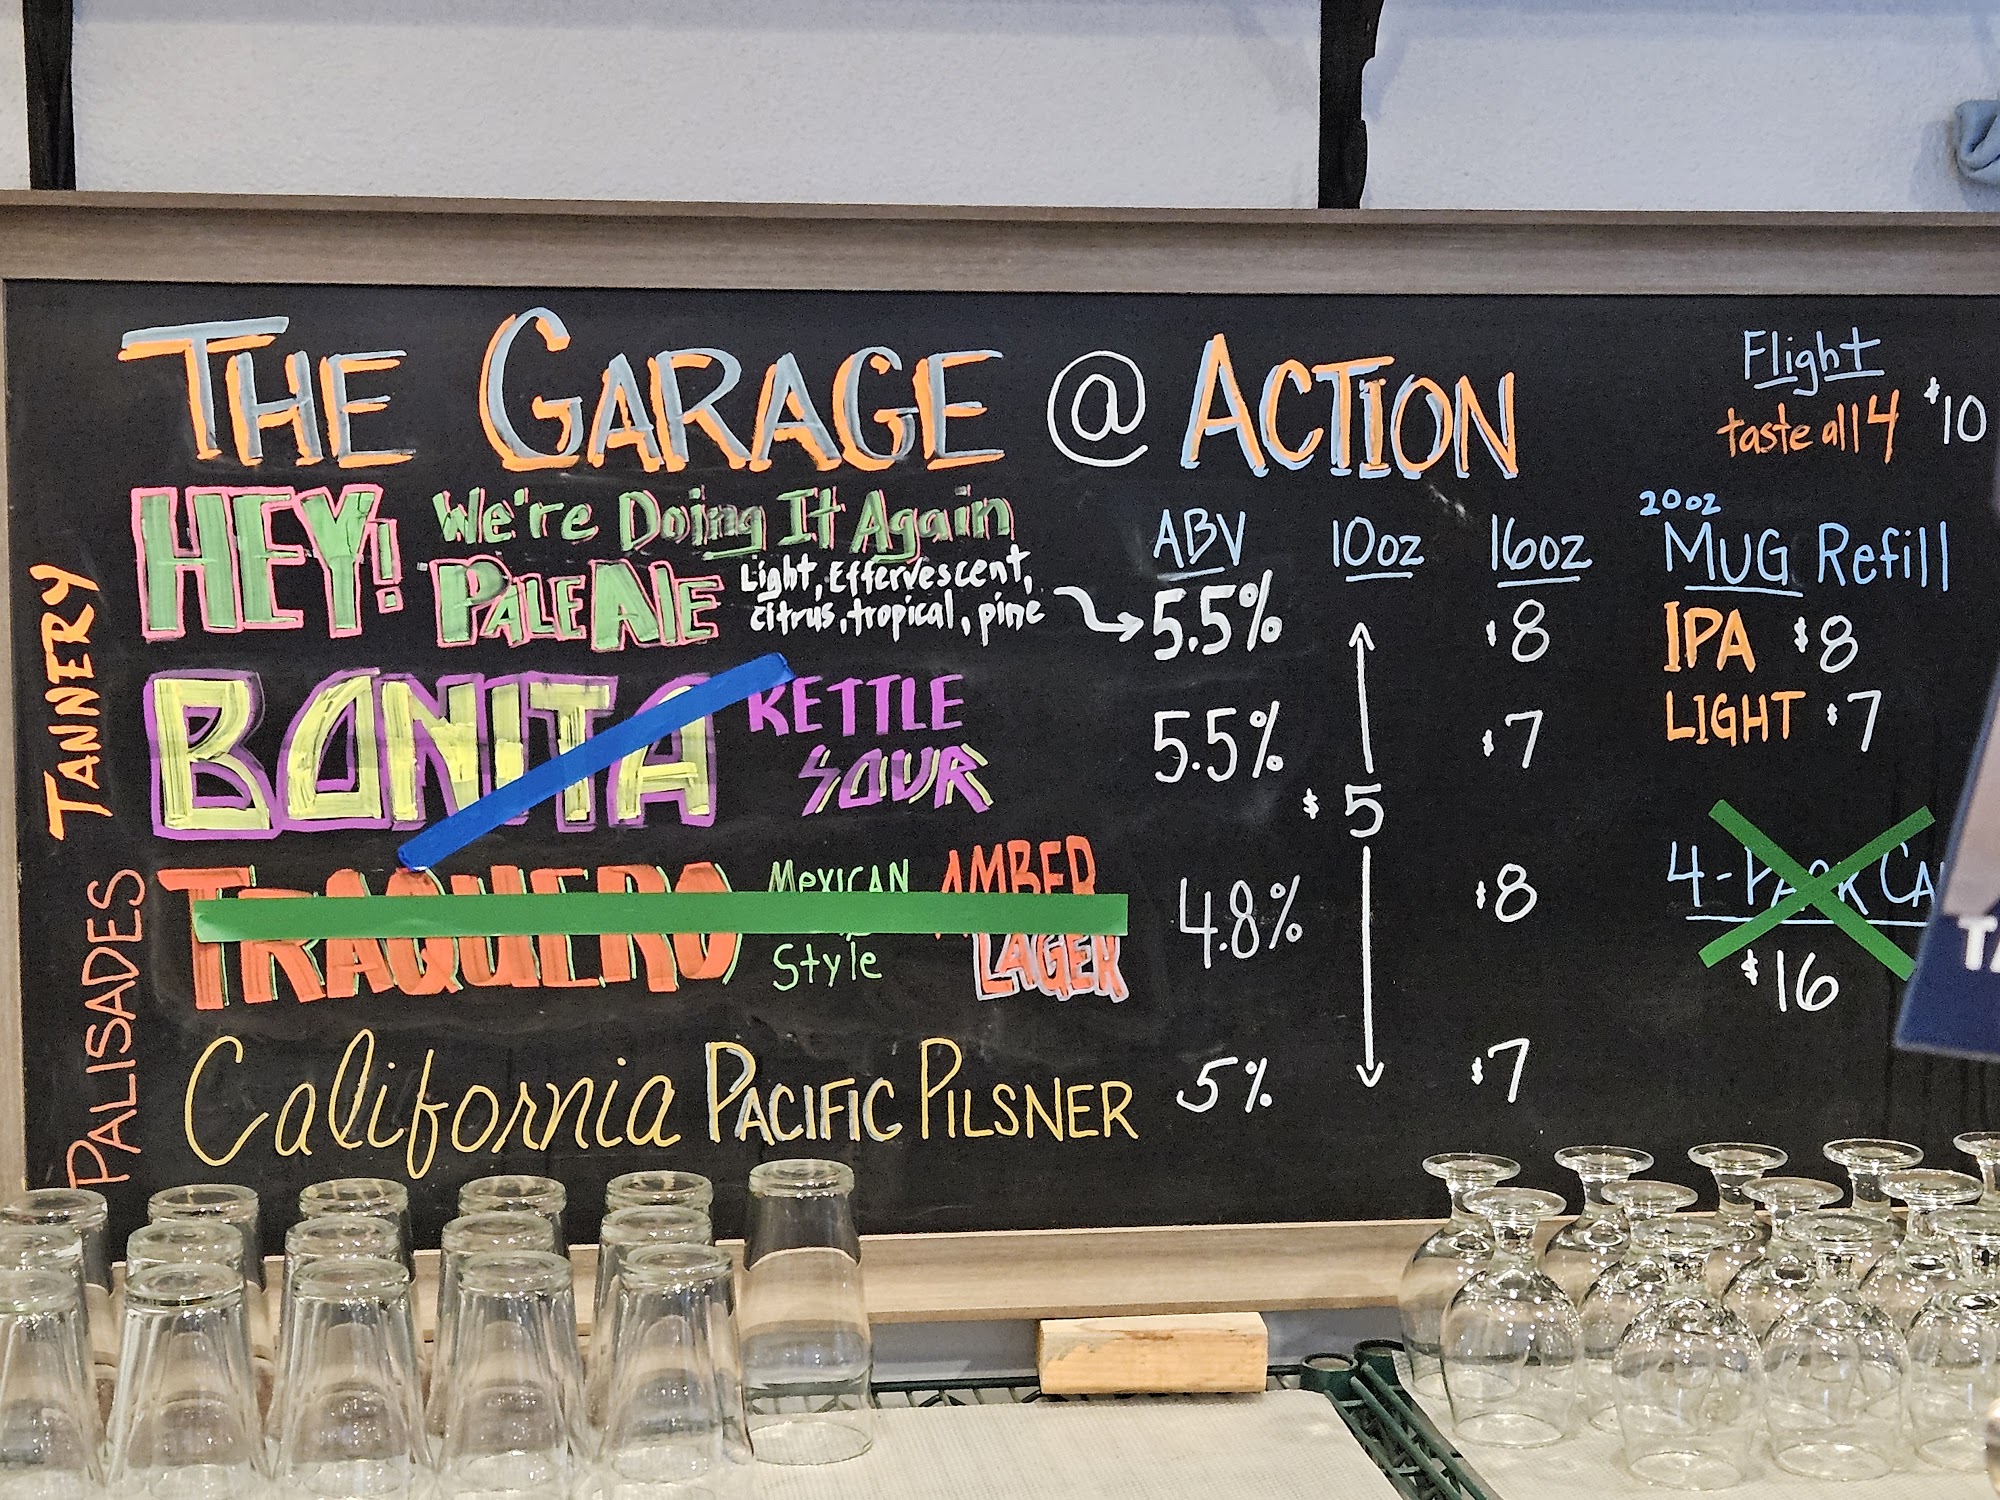 THE GARAGE @ ACTION
Flight
taste all 4 $10
TANNERY
PALISADES
HEY! We're Doing It Again
PALE ALE
Light, Effervescent,
citrus, tropical, pine
ABV 10oz 16oz
5.5% $8
BONITA KETTLE
SOUR
5.5% $7
$5
TRAQUERO MEXICAN AMBER
Style LAGER
4.8% $8
California PACIFIC PILSNER 5% $7
20oz
MUG Refill
IPA $8
LIGHT $7
4-PACK
$16